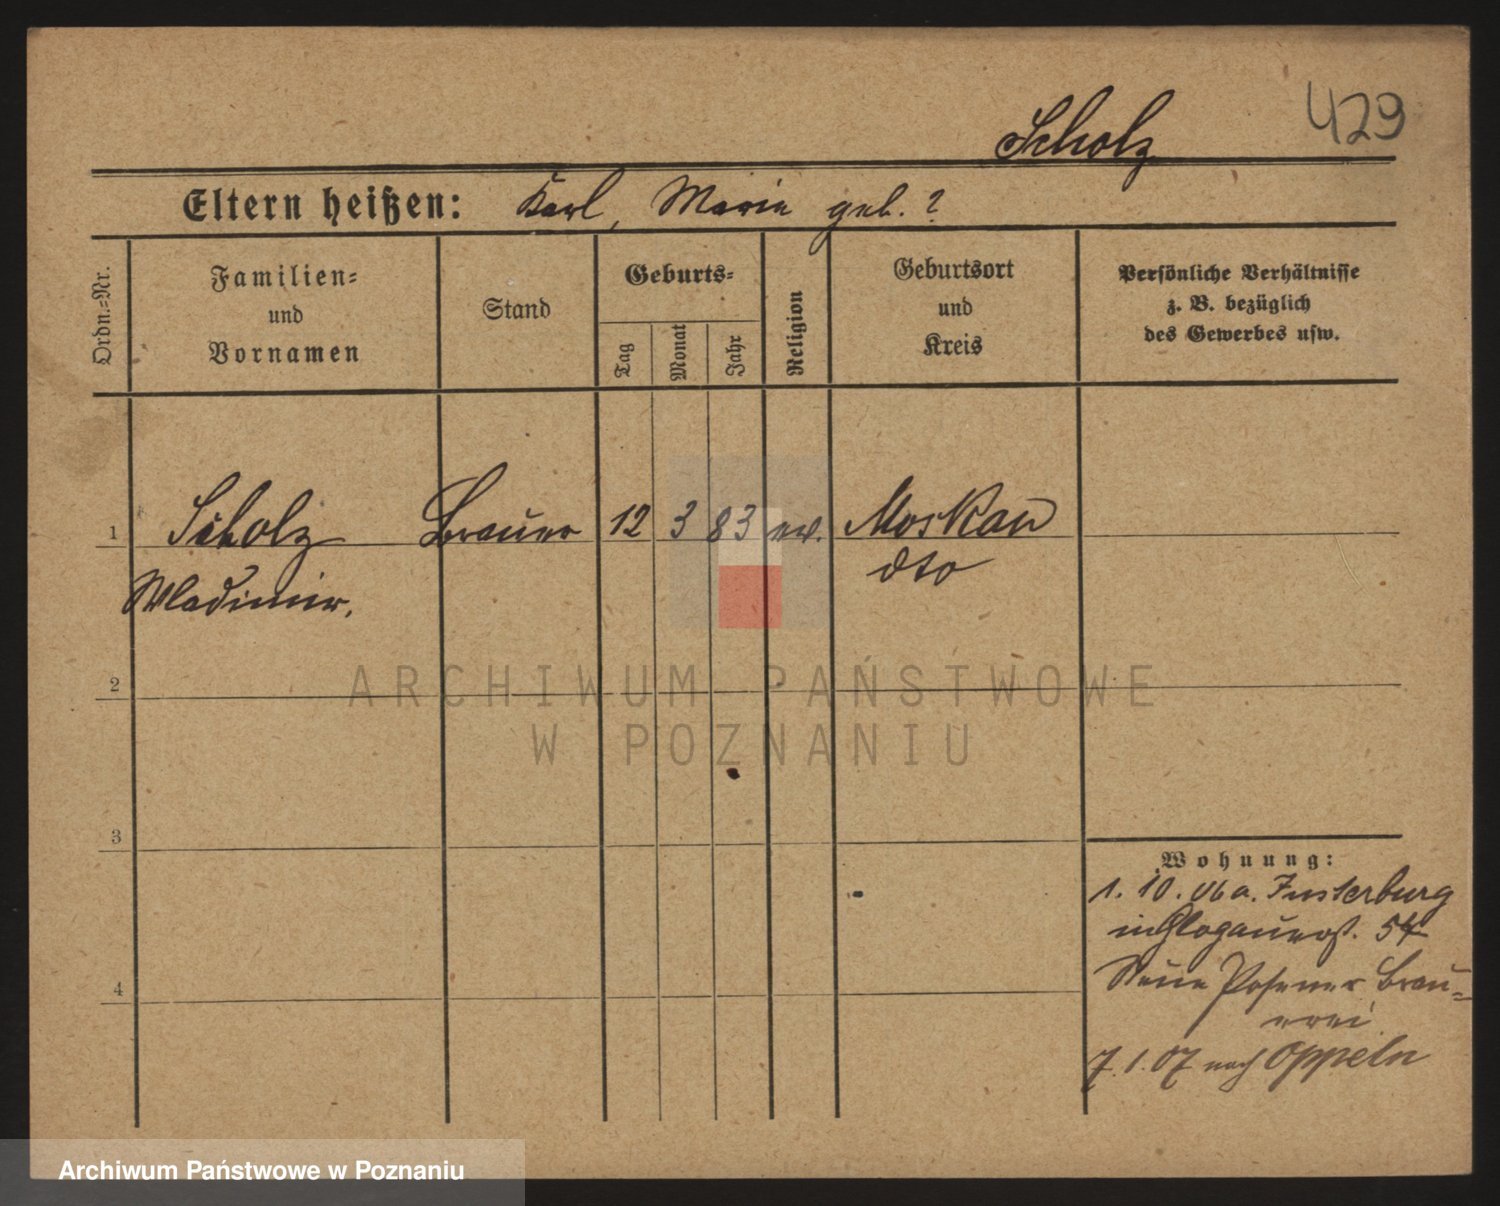 Scholz
429
Eltern heißen: Karl, Marie geb. ?
Ordn.=Nr.
Familien=
und
Vornamen
Stand
Geburts=
Tag
Monat
Jahr
Religion
Geburtsort
und
Kreis
Persönliche Verhältnisse
z. B. bezüglich
des Gewerbes usw.
1 Scholz Brauer 12 3 83 ev. Moskau
Wladimir. dto
2
3
4
Wohnung:
1. 10. 06 a. Insterburg
in Glogauerst. 54
Neue Posener Brau=
erei
7. 1. 07 nach Oppeln
ARCHIWUM PAŃSTWOWE
W POZNANIU
Archiwum Państwowe w Poznaniu